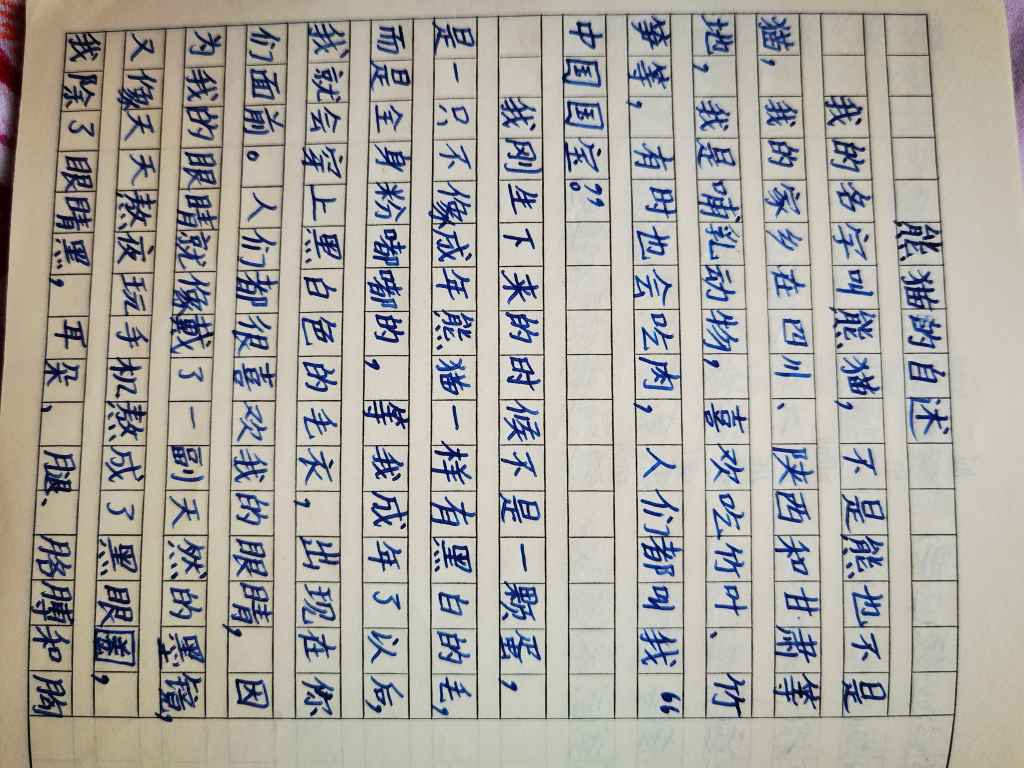 熊猫的自述
我的名字叫熊猫，不是熊也不是
猫，我的家乡在四川、陕西和甘肃等
地，我是哺乳动物，喜欢吃竹叶、竹
笋等，有时也会吃肉，人们都叫我“
中国国宝”。
我刚生下来的时候不是一颗蛋，
是一只不像成年熊猫一样有黑白的毛，
而是全身粉嘟嘟的，等我成年了以后，
我就会穿上黑白色的毛衣，出现在你
们面前。人们都很喜欢我的眼睛，因
为我的眼睛就像戴了一副天然的墨镜，
又像天天熬夜玩手机熬成了黑眼圈，
我除了眼睛黑，耳朵、腿、胳膊和胸